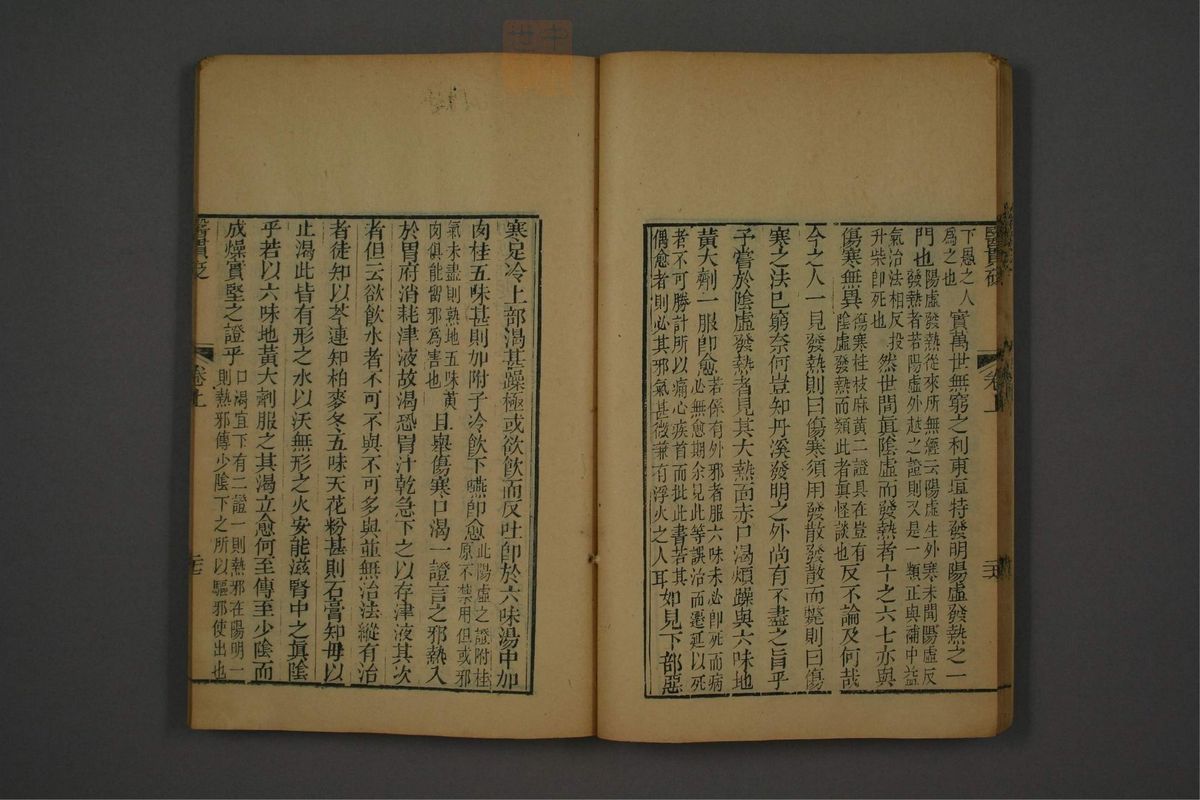 下愚之人實萬世無窮之利東垣特發明陽虛發熱之一
為之也
門也陽虛發熱從來所無經云陽虛生外寒未聞陽虛反
發熱者若陽虛外越之證則又是一類正與補中益
氣治法相反投然世間眞陰虛而發熱者十之六七亦與
升柴卽死也
傷寒無異傷寒桂枝麻黃二證具在豈有反不論及何哉
陰虛發熱而類此者眞怪談也
今之人一見發熱則曰傷寒須用發散發散而斃則曰傷
寒之法已窮奈何豈知丹溪發明之外尚有不盡之旨乎
予嘗於陰虛發熱者見其大熱面赤口渴煩躁與六味地
黃大劑一服卽愈若係有外邪者服六味未必卽死而病
必無愈期余見此等誤治而遷延以死
者不可勝計所以痛心疾首而批此書若其
偶愈者則必其邪氣甚微兼有浮火之人耳如見下部惡
醫貫砭
卷上
寒足冷上部渴甚躁極或欲飲而反吐卽於六味湯中加
肉桂五味甚則加附子冷飲下嚥卽愈此陽虛之證附桂
原不禁用但或邪
氣未盡則熱地五味萸
肉俱能留邪為害也且舉傷寒口渴一證言之邪熱入
於胃府消耗津液故渴恐胃汁乾急下之以存津液其次
者但云欲飲水者不可不與不可多與並無治法縱有治
者徒知以芩連知柏麥冬五味天花粉甚則石膏知母以
止渴此皆有形之水以沃無形之火安能滋腎中之眞陰
乎若以六味地黃大劑服之其渴立愈何至傳至少陰而
成燥實堅之證乎口渴宜下有二證一則熱邪在陽明一
則熱邪傳少陰下之所以驅邪使出也
醫貫砭
卷上